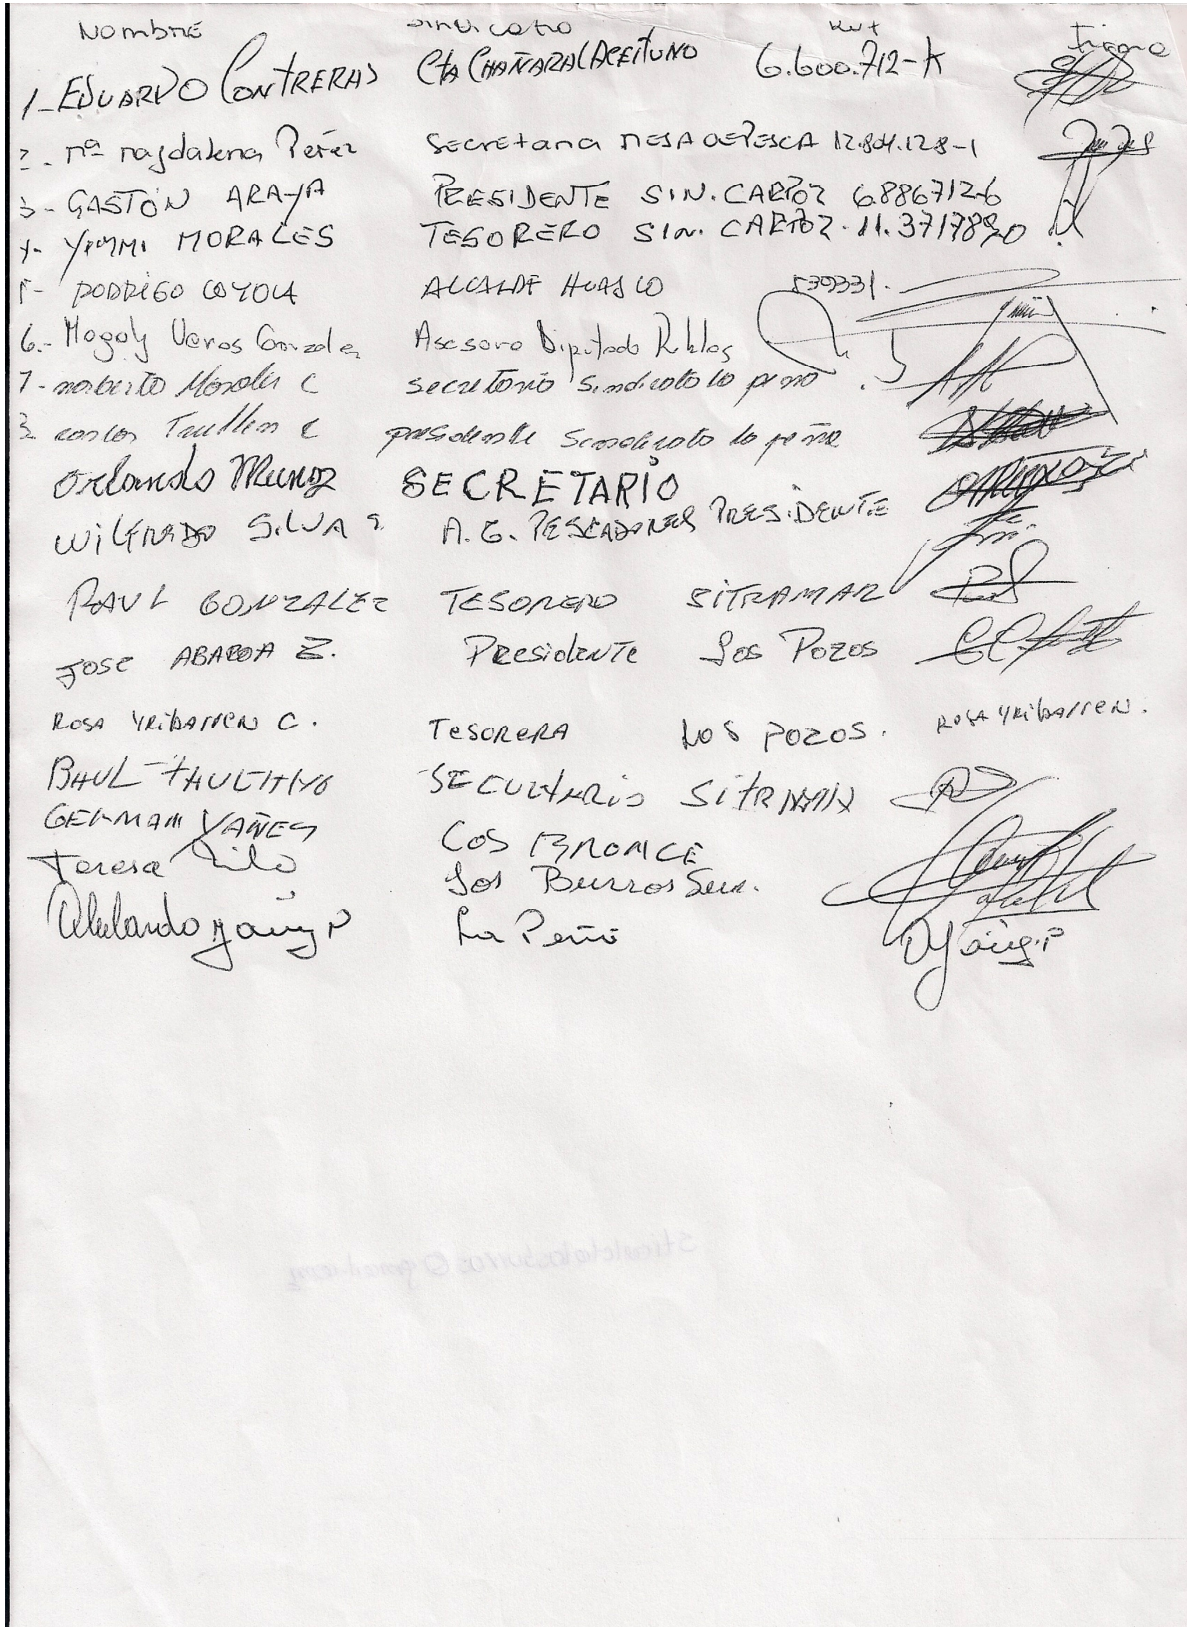 Nombre Sindicato Rut firma
1- EDUARDO CONTRERAS Cta CHAÑARAL ACEITUNO 6.600.712-K
2.- Mª Magdalena Pérez Secretaria MESA DE PESCA 12.804.128-1
3- GASTON ARAYA PRESIDENTE SIN. CARRIZ 6886712-6
4- YIMMI MORALES TESORERO SIN. CARRIZ. 11.371789-0
5- RODRIGO LOYOLA ALCALDE HUASCO 539331.
6.- Magaly Varas Gonzalez Asesora Diputado Robles
7- norberto Morales C secretario Sindicato la peña
8. carlos Trullen C presidente Sindicato la peña
Orlando Munoz SECRETARIO
WILFRADO SILVA S. A.G. PESCADORES PRESIDENTE
RAUL GONZALEZ TESORERO SITRAMAR
JOSE ABAROA Z. Presidente Los Pozos
ROSA YRIBARREN C. TESORERA LOS POZOS. ROSA YRIBARREN.
SITRAMAR
GERMAN YAÑEZ LOS BRONCE
Teresa Los Burros Sur.
Abelardo La Peña